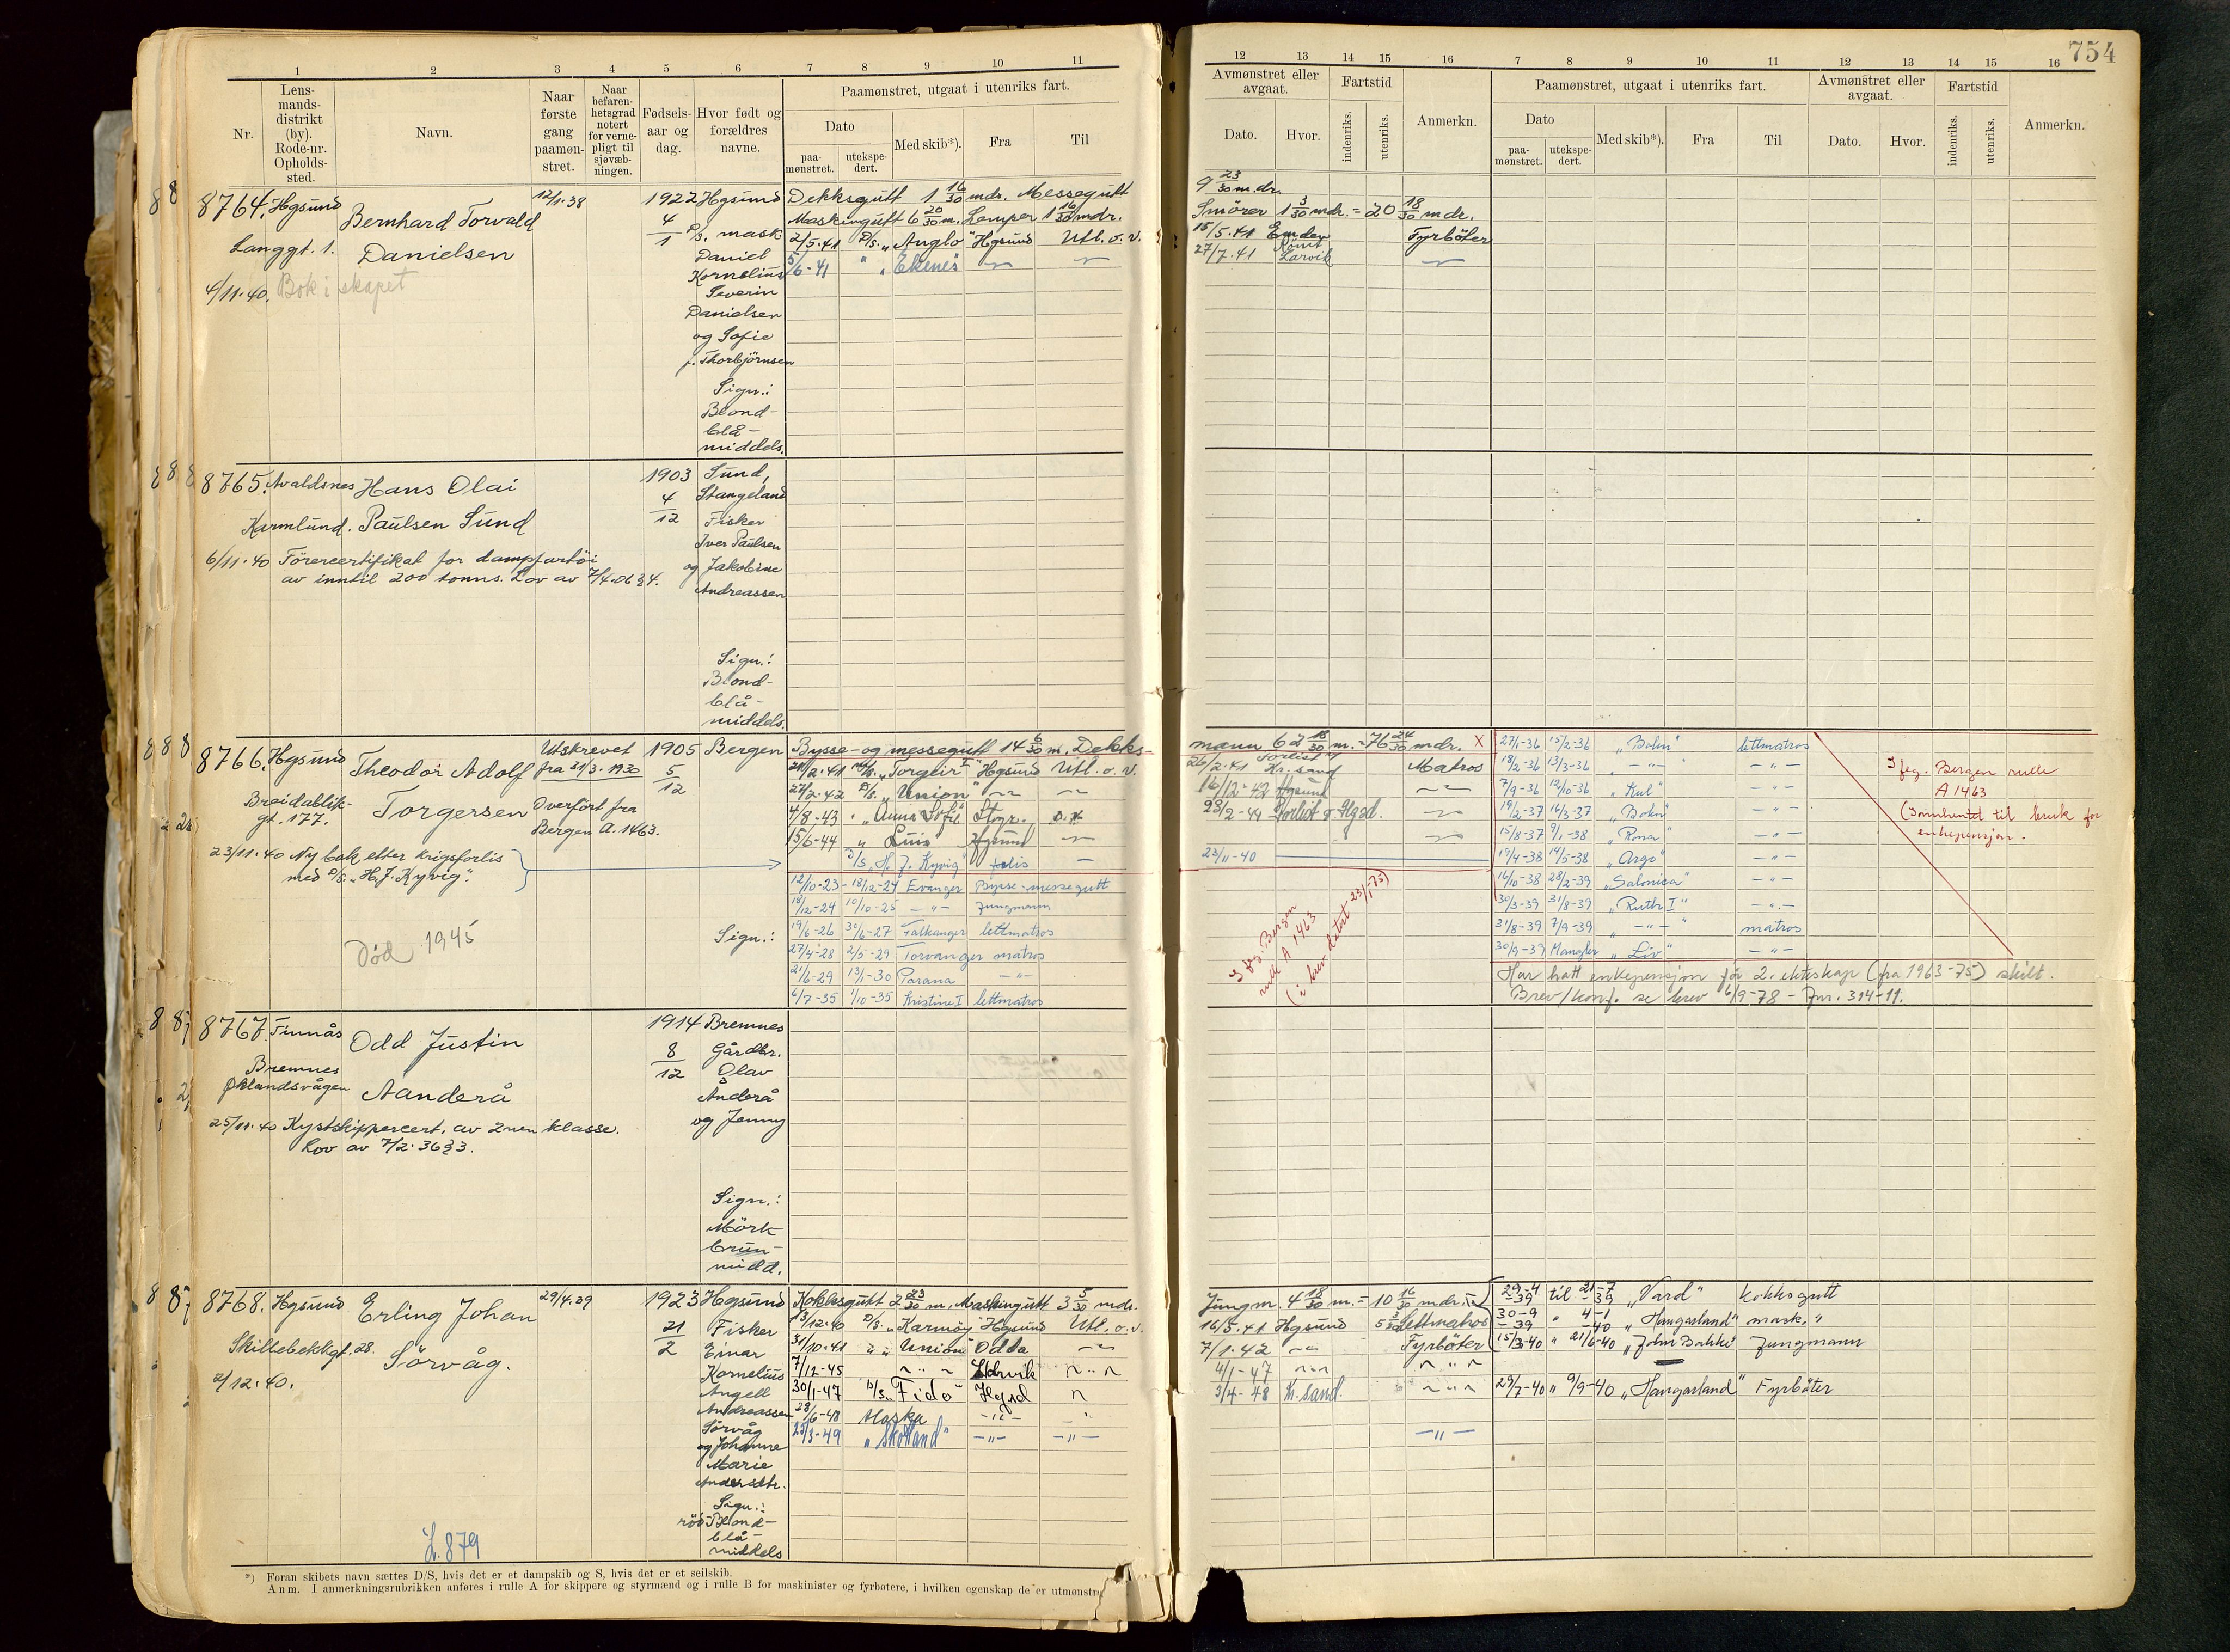 754
1 2 3 4 5 6 7 8 9 10 11
12 13 14 15 16 7 8 9 10 11 12 13 14 15 16
Nr.
Lens-
mands-
distrikt
(by).
Rode-nr.
Opholds-
sted.
Navn.
Naar
første
gang
paamøn-
stret.
Naar
befaren-
hetsgrad
notert
for verne-
pligt til
sjøvæb-
ningen.
Fødsels-
aar og
dag.
Hvor født og
forældres
navne.
Paamønstret, utgaat i utenriks fart.
Dato
paa-
mønstret.
utekspe-
dert.
Med skib*).
Fra
Til
Avmønstret eller
avgaat.
Dato.
Hvor.
Fartstid
indenriks.
utenriks.
Anmerkn.
Paamønstret, utgaat i utenriks fart.
Dato
paa-
mønstret.
utekspe-
dert.
Med skib*).
Fra
Til
Avmønstret eller
avgaat.
Dato.
Hvor.
Fartstid
indenriks.
utenriks.
Anmerkn.
8764. Hgsund
Langgt. 1.
4/11.40. Bok i skapet
Bernhard Torvald
Danielsen
12/1.38
1922
4
1
Hgsund
D/s. mask
Daniel
Kornelius
Severin
Danielsen
og Sofie
f. Thorbjörnsen
Sign.:
Blond-
blå-
middels.
Dekksgutt 1 16/30 mdr. Messegutt 9 23/30 m.dr.
Maskingutt 6 20/30 m. Lemper 1 16/30 mdr. Smörer 1 3/30 mdr. = 20 18/30 mdr.
2/5.41 D/s. „Anglo" Hgsund Utl. o. v. 15/5.41 Emden Fyrböter
5/6-41 " „Ekenes" 27/7.41 Larvik
8765. Avaldsnes
Karmlund.
Hans Olai
Paulsen Sund
6/11.40 Förercertifikat for dampfartöi
av inntil 200 tonns. Lov av 7/4.06 § 4.
1903
4
12
Sund,
Stangeland
Fisker
Iver Paulsen
og Jakobine
Andreassen
Sign.:
Blond-
blå-
middels.
8766. Hgsund
Breidablik-
gt. 177.
Theodor Adolf
Torgersen
Utskrevet
fra 31/3.1930
Overfört fra
Bergen A. 1463.
23/11.40 Ny bok etter krigsforlis
med D/s. „H. J. Kyvig".
Död 1945
1905
5
12
Bergen
Sign.:
Bysse- og messegutt 14 6/30 m. Dekks-
mann 62 18/30 m. = 76 24/30 mdr. X
21/2.41 „Torgeir I" Hgsund Utl. o. v. 26/2.41 Forlist v/ Kr.sand Matros
27/2.42 D/s. „Union" 16/12-42 Hgsund
4/8-43 „Anna Sofie" Stogr. 23/2-44 Forlist
15/6-44 „ Luis Hgsund
D/s „H. J. Kyvig" forlis 23/11-40
12/10-23 - 18/12-24 Evanger Bysse-messegutt
18/12-24 10/10-25 -"- Jungmann
19/6-26 30/6-27 Falkanger lettmatros
27/4-28 2/5-29 Torvanger matros
21/6-29 13/1-30 Parana -"-
6/7-35 1/10-35 Kristine I lettmatros
I flg. Bergen
rull A 1463
(i brev datert 23/1-75)
27/1-36 15/2-36 „Bokn" lettmatros
18/2-36 13/3-36 -"- -"-
7/9-36 12/10-36 „Kul" -"-
19/2-37 16/3-37 „Bokn" -"-
15/8-37 9/1-38 „Rona" -"-
19/4-38 14/5-38 „Argo" -"-
16/10-38 28/2-39 „Salonica" -"-
30/3-39 31/8-39 „Ruth I" -"-
31/8-39 7/9-39 „ -"- " matros
30/9-39 Mangler „Liv" -"-
I flg. Bergen rulle
A 1463
(Innhentet til bruk for
enkepensjon.
Har hatt enkepensjon for 2. ekteskap (fra 1963-75) skilt.
Brev/konf. se brev 6/9-78 - Jnr. 314-11.
8767. Finnås
Bremnes
Öklandsvågen
Odd Justin
Aanderå
25/11.40 Kystskippercert. av 2nen klasse.
Lov av 7/2.36 § 3.
1914
8
12
Bremnes
Gårdbr.
Olav
Anderå
og Jenny
Sign.:
Mörk-
brun-
midd.
8768. Hgsund
Skillebekkgt. 28.
2/12.40.
Erling Johan
Sörvåg.
29/4.39
1923
21
2
Hgsund
Fisker
Einar
Kornelius
Angell
Andreassen
Sörvåg
og Johanne
Marie
Andersdtr.
Sign.:
röd-Blond-
blå-
middels
L.879
Kokksgutt 2 23/30 m. Maskingutt 3 5/30 mdr.
Jungm. 4 18/30 m. = 10 16/30 mdr.
13/12.40 D/s. „Karmöy" Hgsund Utl. o. v. 16/5.41 Hgsund Lettmatros
31/10.41 „ „Union" Odda 7/1.42 Fyrböter
7/12-45 Larvik 4/1-47
30/1-47 D/s. „Fido" Hgsd 3/4-48 Kr.sand.
28/6-48 Alaska -"-
23/3-49 „Skotland" -"- -"- -"-
29-4 -39 til 21-7 -39 „Vard" kokksgutt
30-9 -39 " 4-1 -40 „Hangarland" mask. "
15/3-40 " 21/6-40 „John Bakke" Jungmann
29/7-40 " 9/9-40 „Hangarland" Fyrböter
*) Foran skibets navn sættes D/S, hvis det er et dampskib og S, hvis det er et seilskib.
Anm. I anmerkningsrubrikken anføres i rulle A for skippere og styrmænd og i rulle B for maskinister og fyrbøtere, i hvilken egenskap de er utmønstre